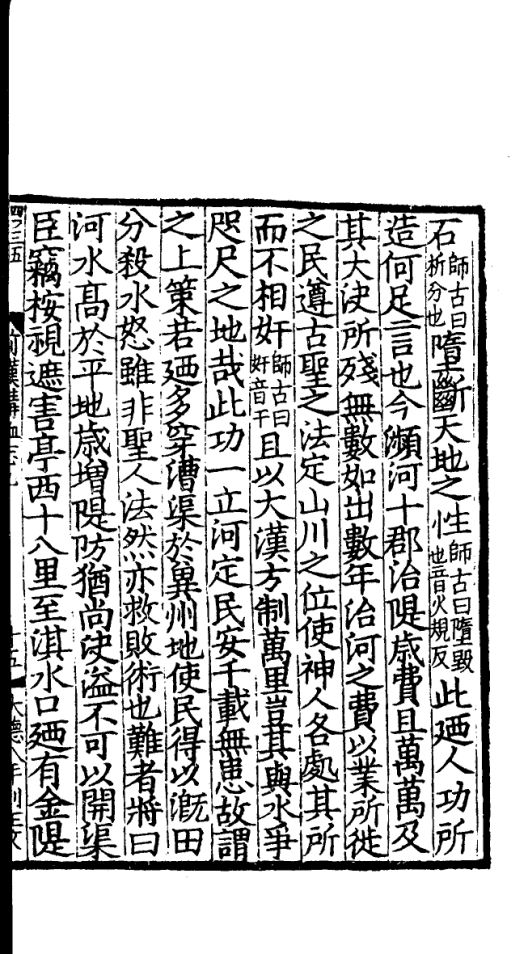 石師古曰析分也墮斷天地之性師古曰墮毀也音火規反此廼人功所
造何足言也今瀕河十郡治隄歲費且萬萬及
其大決所殘無數如出數年治河之費以業所徙
之民遵古聖之法定山川之位使神人各處其所
而不相奸師古曰奸音干且以大漢方制萬里豈其與水爭
咫尺之地哉此功一立河定民安千載無患故謂
之上策若廼多穿漕渠於兾州地使民得以漑田
分殺水怒雖非聖人法然亦救敗術也難者將曰
河水髙於平地歲增隄防猶尚決溢不可以開渠
臣竊桉視遮害亭西十八里至淇水口廼有金隄